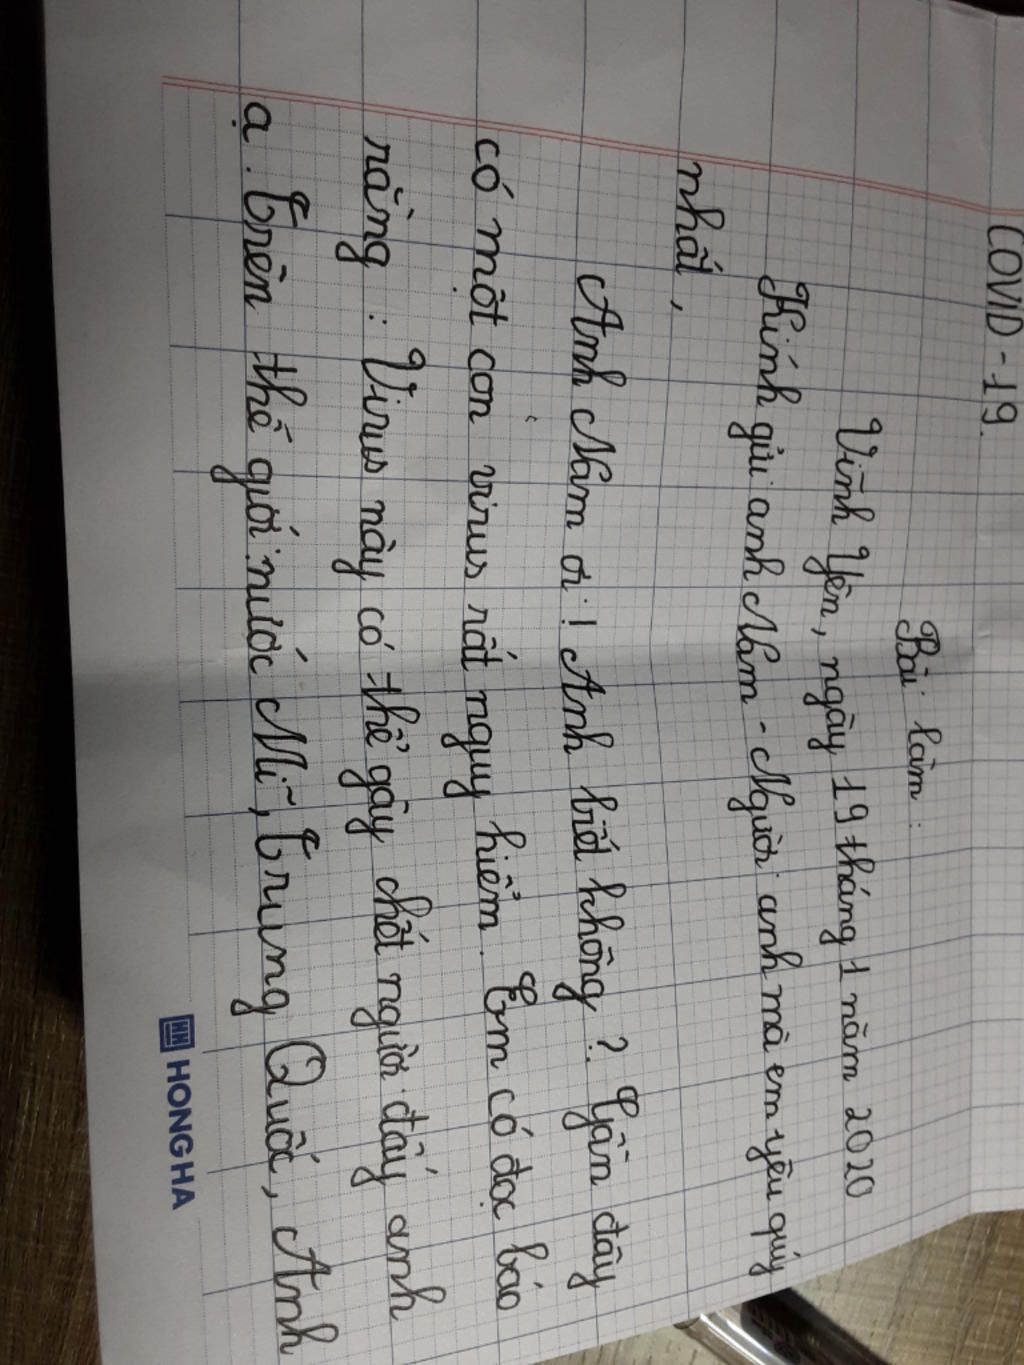 COVID-19.
Bài làm:
Vĩnh Yên, ngày 19 tháng 1 năm 2020
Kính gửi anh Nam - Người anh mà em yêu quý
nhất,
Anh Nam ơi! Anh biết không? Gần đây
có một con virus rất nguy hiểm. Em có đọc báo
rằng: Virus này có thể gây chết người đấy anh
ạ. Trên thế giới nước Mĩ, Trung Quốc, Anh
HONG HA